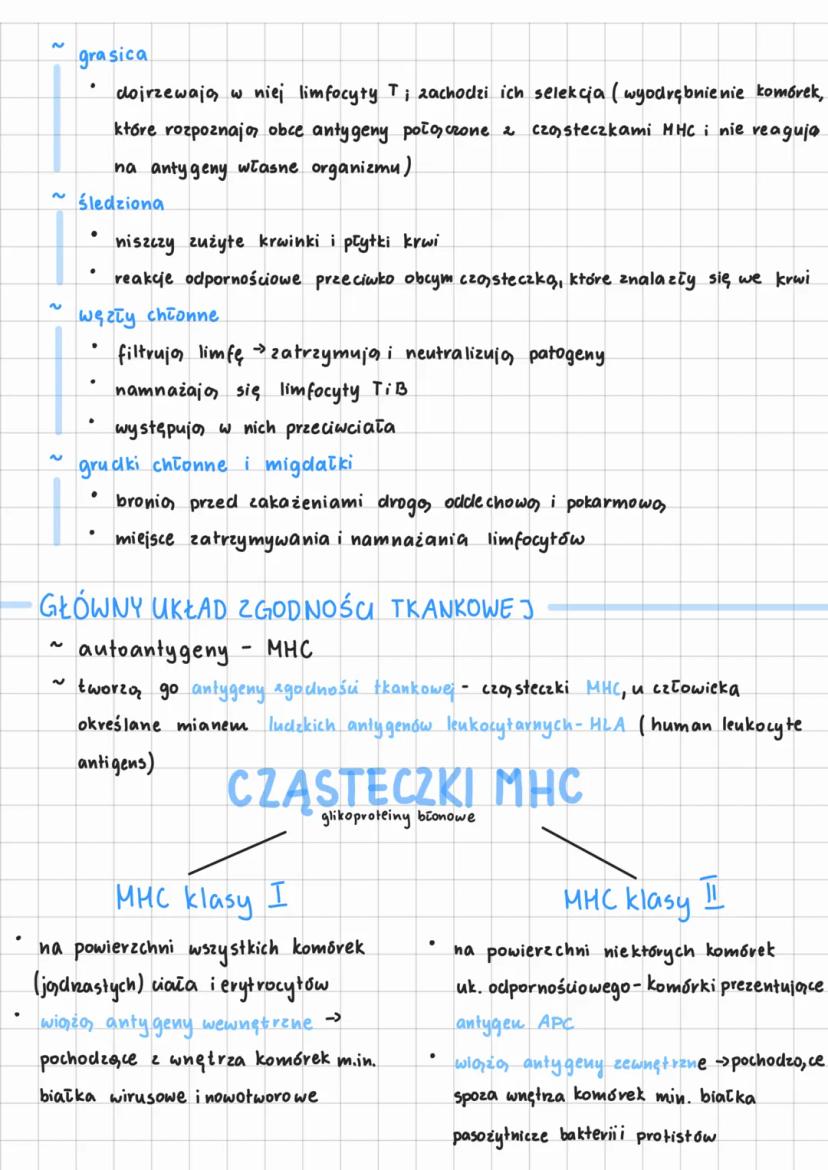 ~ grasica
• dojrzewają w niej limfocyty T; zachodzi ich selekcja (wyodrębnienie komórek,
które rozpoznają obce antygeny połączone z cząsteczkami MHC i nie reagują
na antygeny własne organizmu)
~ śledziona
• niszczy zużyte krwinki i płytki krwi
• reakcje odpornościowe przeciwko obcym cząsteczką, które znalazły się we krwi
~ węzły chłonne
• filtrują limfę → zatrzymują i neutralizują patogeny
• namnażają się limfocyty T i B
• występują w nich przeciwciała
~ grudki chłonne i migdałki
• bronią przed zakażeniami drogą oddechową i pokarmową
• miejsce zatrzymywania i namnażania limfocytów
GŁÓWNY UKŁAD ZGODNOŚCI TKANKOWEJ
~ autoantygeny - MHC
~ tworzą go antygeny zgodności tkankowej - cząsteczki MHC, u człowieka
określane mianem ludzkich antygenów leukocytarnych - HLA (human leukocyte
antigens)
CZĄSTECZKI MHC
glikoproteiny błonowe
MHC klasy I
• na powierzchni wszystkich komórek
(jądrzastych) ciała i erytrocytów
• wiążą antygeny wewnętrzne →
pochodzące z wnętrza komórek m.in.
białka wirusowe i nowotworowe
MHC klasy II
• na powierzchni niektórych komórek
uk. odpornościowego - komórki prezentujące
antygen APC
• wiążą antygeny zewnętrzne → pochodzące
spoza wnętrza komórek min. białka
pasożytnicze bakterii i protistów